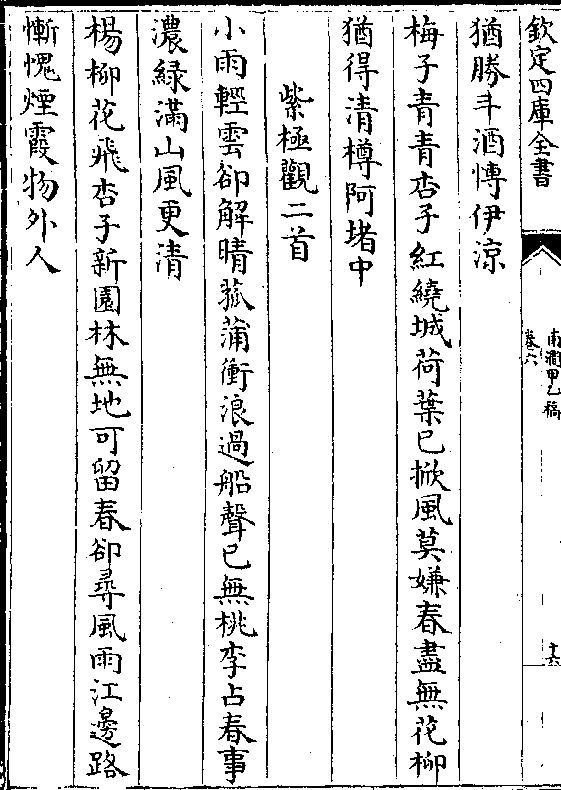 欽定四庫全書
南澗甲乙稿
卷六
十六
猶勝斗酒博伊涼
梅子青青杏子紅繞城荷葉已掀風莫嫌春盡無花柳
猶得清樽阿堵中
紫極觀二首
小雨輕雲卻解晴菰蒲衝浪過船聲已無桃李占春事
濃緑滿山風更清
楊柳花飛杏子新園林無地可留春卻尋風雨江邊路
慚愧煙霞物外人